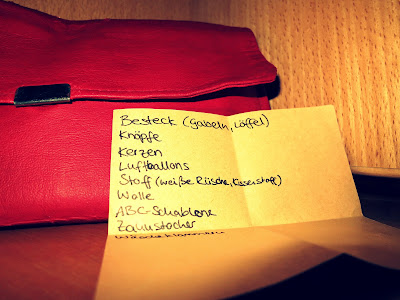 Besteck (Gabeln, Löffel)
Knöpfe
Kerzen
Luftballons
Stoff (weiße Rüsche, Kissenstoff)
Wolle
ABC-Schablone
Zahnstocher